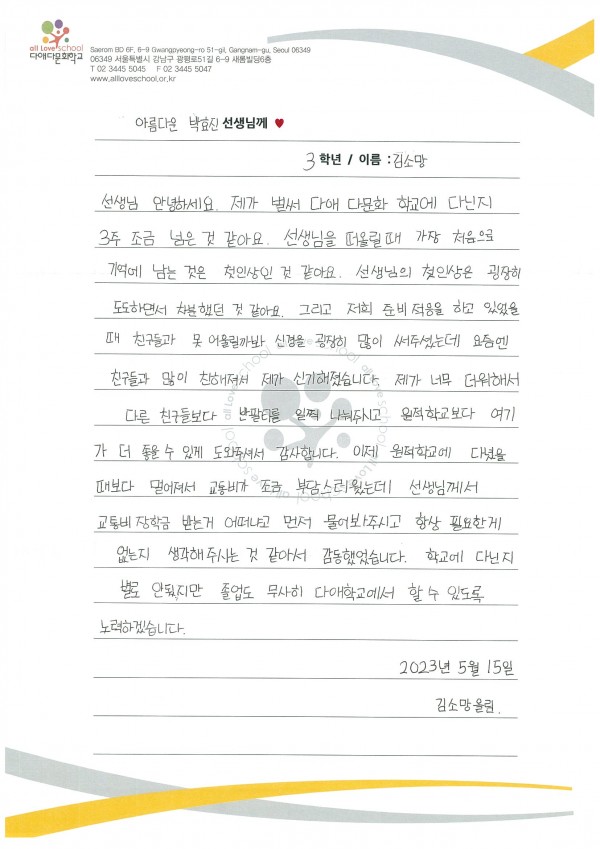 all Love school
다애다문화학교
Saerom BD 6F, 6-9 Gwangpyeong-ro 51-gil, Gangnam-gu, Seoul 06349
06349 서울특별시 강남구 광평로51길 6-9 새롬빌딩6층
T 02 3445 5045 F 02 3445 5047
www.allloveschool.or.kr
아름다운 박효진 선생님께 ♥
3 학년 / 이름 : 김소망
선생님 안녕하세요. 제가 벌써 다애 다문화 학교에 다닌지
3주 조금 넘은 것 같아요. 선생님을 떠올릴때 가장 처음으로
기억에 남는 것은 첫인상인 것 같아요. 선생님의 첫인상은 굉장히
도도하면서 차분했던 것 같아요. 그리고 저희 준비적응을 하고 있었을
때 친구들과 못 어울릴까봐 신경을 굉장히 많이 써주셨는데 요즘엔
친구들과 많이 친해져서 제가 신기해졌습니다. 제가 너무 더워해서
다른 친구들보다 반팔티를 일찍 나눠주시고 원적학교보다 여기
가 더 좋을 수 있게 도와주셔서 감사합니다. 이제 원적학교에 다녔을
때보다 멀어져서 교통비가 조금 부담스러웠는데 선생님께서
교통비 장학금 받는거 어떠냐고 먼저 물어봐주시고 항상 필요한게
없는지 생각해주시는 것 같아서 감동했었습니다. 학교에 다닌지
별로 안됐지만 졸업도 무사히 다애학교에서 할 수 있도록
노력하겠습니다.
2023년 5월 15일
김소망올림.